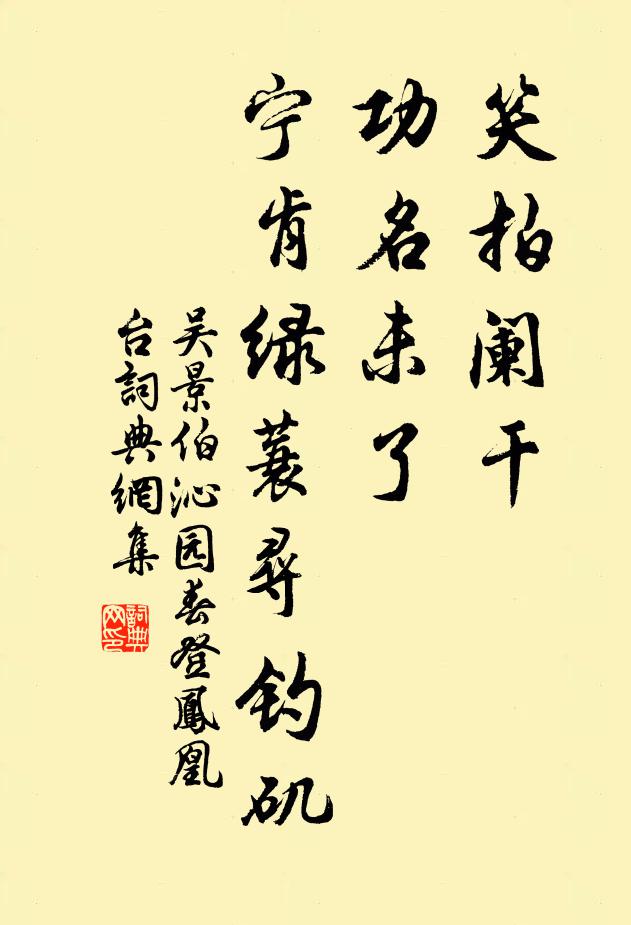 笑拍阑干
功名未了
宁肯绿蓑寻钓矶
吴景伯沁园春登鳳凰
台詞典網集
詞典
网印